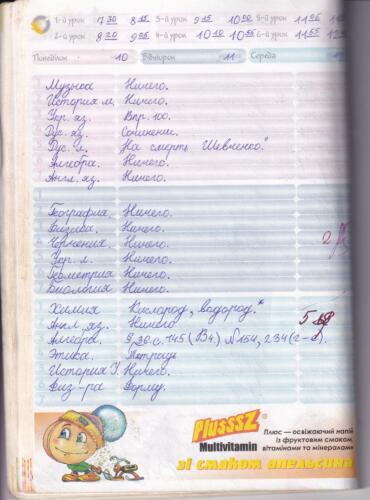 1-й урок 7 30 8 15 3-й урок 9 15 10 00 5-й урок 11 05
2-й урок 8 20 9 05 4-й урок 10 10 10 55 6-й урок 11 55
Понеділок 10 Вівторок 11 Середа
Музыка Ничего.
История м. Ничего.
Укр. яз. Впр. 100.
Рус. яз. Сочинение.
Рус. л. На смерть Шевченко."
Алгебра. Ничего.
Англ. яз. Ничего.
География. Ничего.
Физика. Ничего.
Черчения. Ничего. 2
Укр. л. Ничего.
Геометрия Ничего.
Биология Ничего.
Химия Кислород, водород.*
Англ яз. Ничего 5
Алгебра. §30. с. 145 (В4) №154, 234(2-).
Этика. Тетрадь
История У. Ничего.
Физ-ра Форму.
Plusssz
Multivitamin
Плюс — освіжаючий напій
із фруктовим смаком,
вітамінами та мінералами
зі смаком апельсина